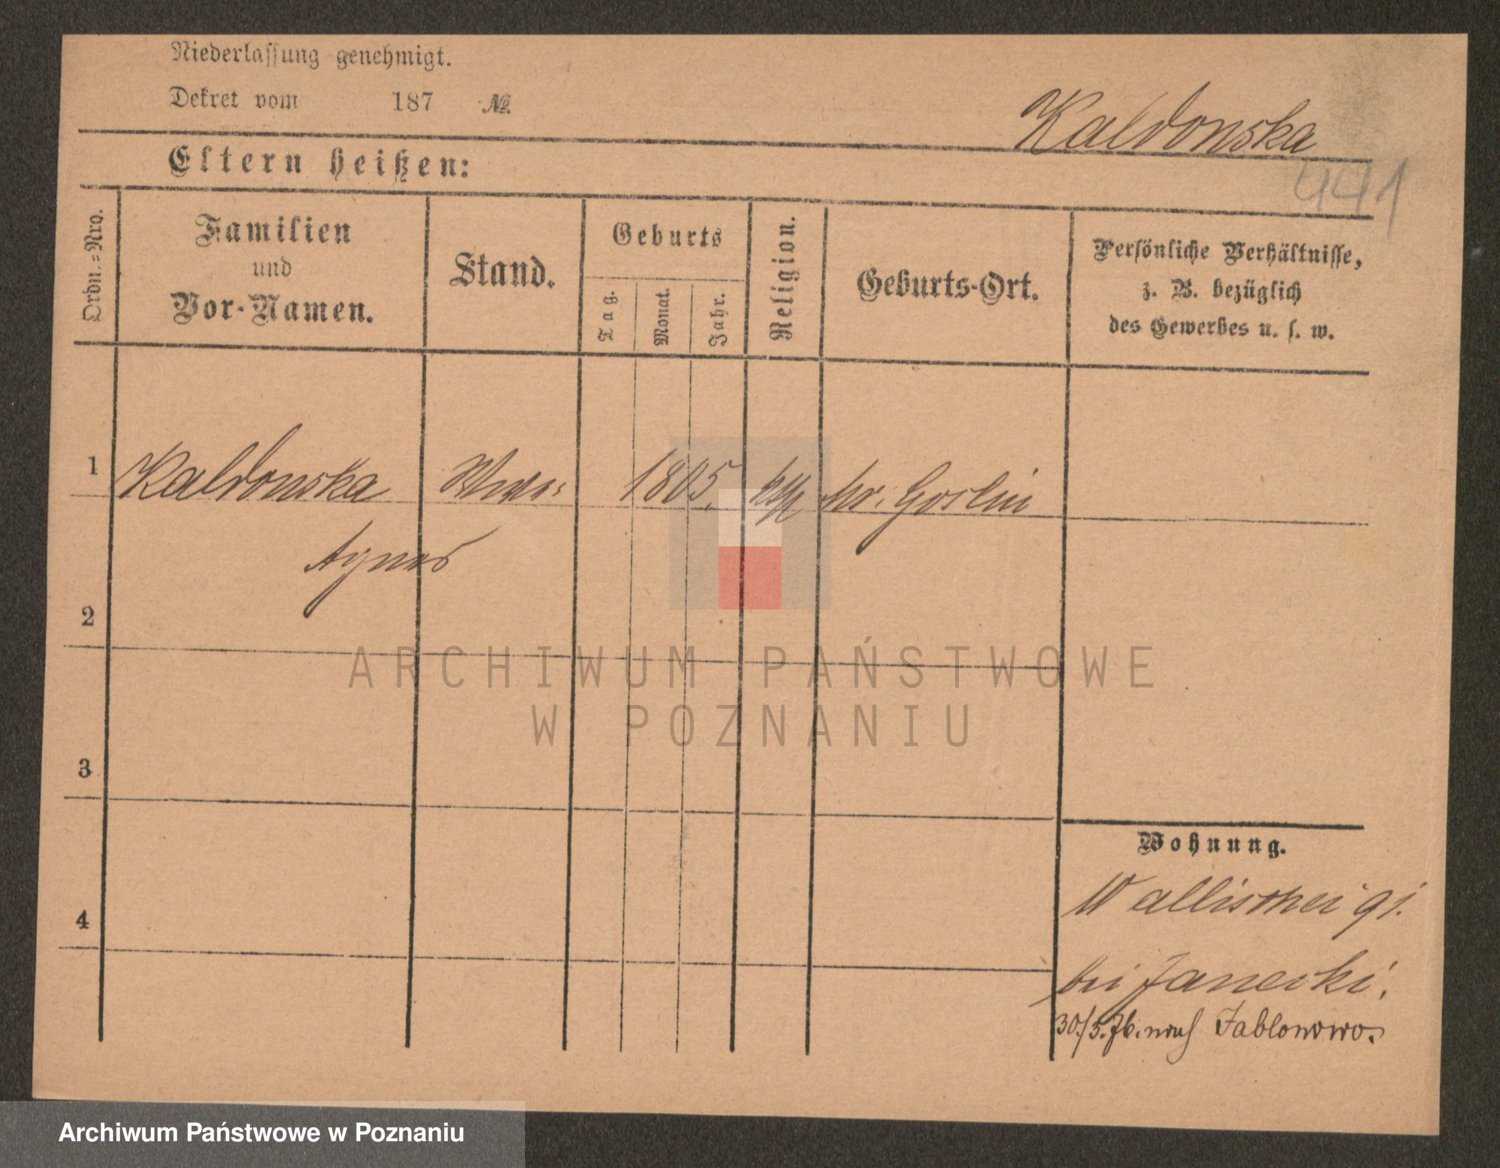 Niederlassung genehmigt.
Dekret vom 187 №.
Kaldonska
Eltern heißen:
441
Ordn.=Nro.
Familien
und
Vor-Namen.
Stand.
Geburts
Tag.
Monat.
Jahr.
Religion.
Geburts-Ort.
Persönliche Verhältnisse,
z. B. bezüglich
des Gewerbes u. s. w.
1
Kaldonska
1805.
kth
Mr. Goslin
Agnes
2
3
4
Wohnung.
Wallischei 91.
bei Janecki.
30/5.76. nach Jablonowo.
ARCHIWUM PAŃSTWOWE
W POZNANIU
Archiwum Państwowe w Poznaniu